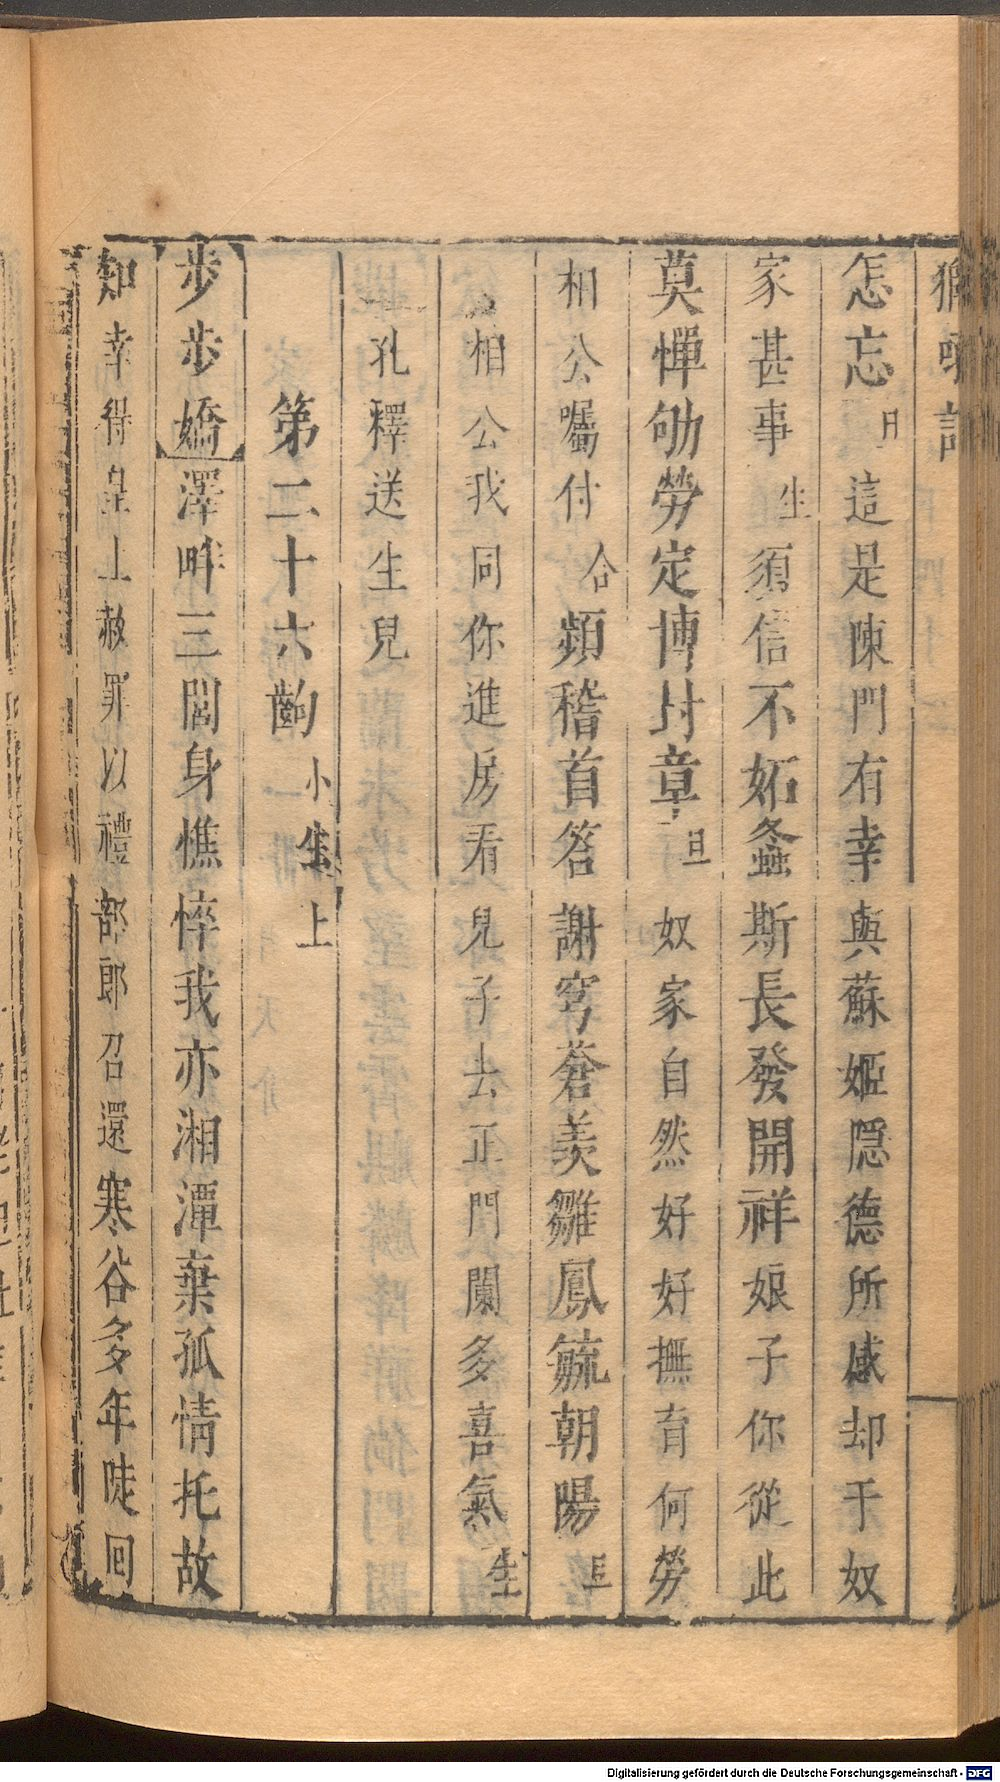 獅吼記
怎忘旦這是陳門有幸與蘇姬隱德所感却干奴
家甚事生須信不妬螽斯長發開祥娘子你從此
莫憚劬勞定博封章旦奴家自然好好撫育何勞
相公囑付合頻稽首荅謝穹蒼羡雛鳳毓朝陽旦
相公我同你進房看兒子去正門闌多喜氣生
孔釋送生兒
第二十六齣小生上
步步嬌澤畔三閭身憔悴我亦湘潭棄孤情托故
知幸得皇上赦罪以禮部郎召還寒谷多年陡回
Digitalisierung gefördert durch die Deutsche Forschungsgemeinschaft - DFG